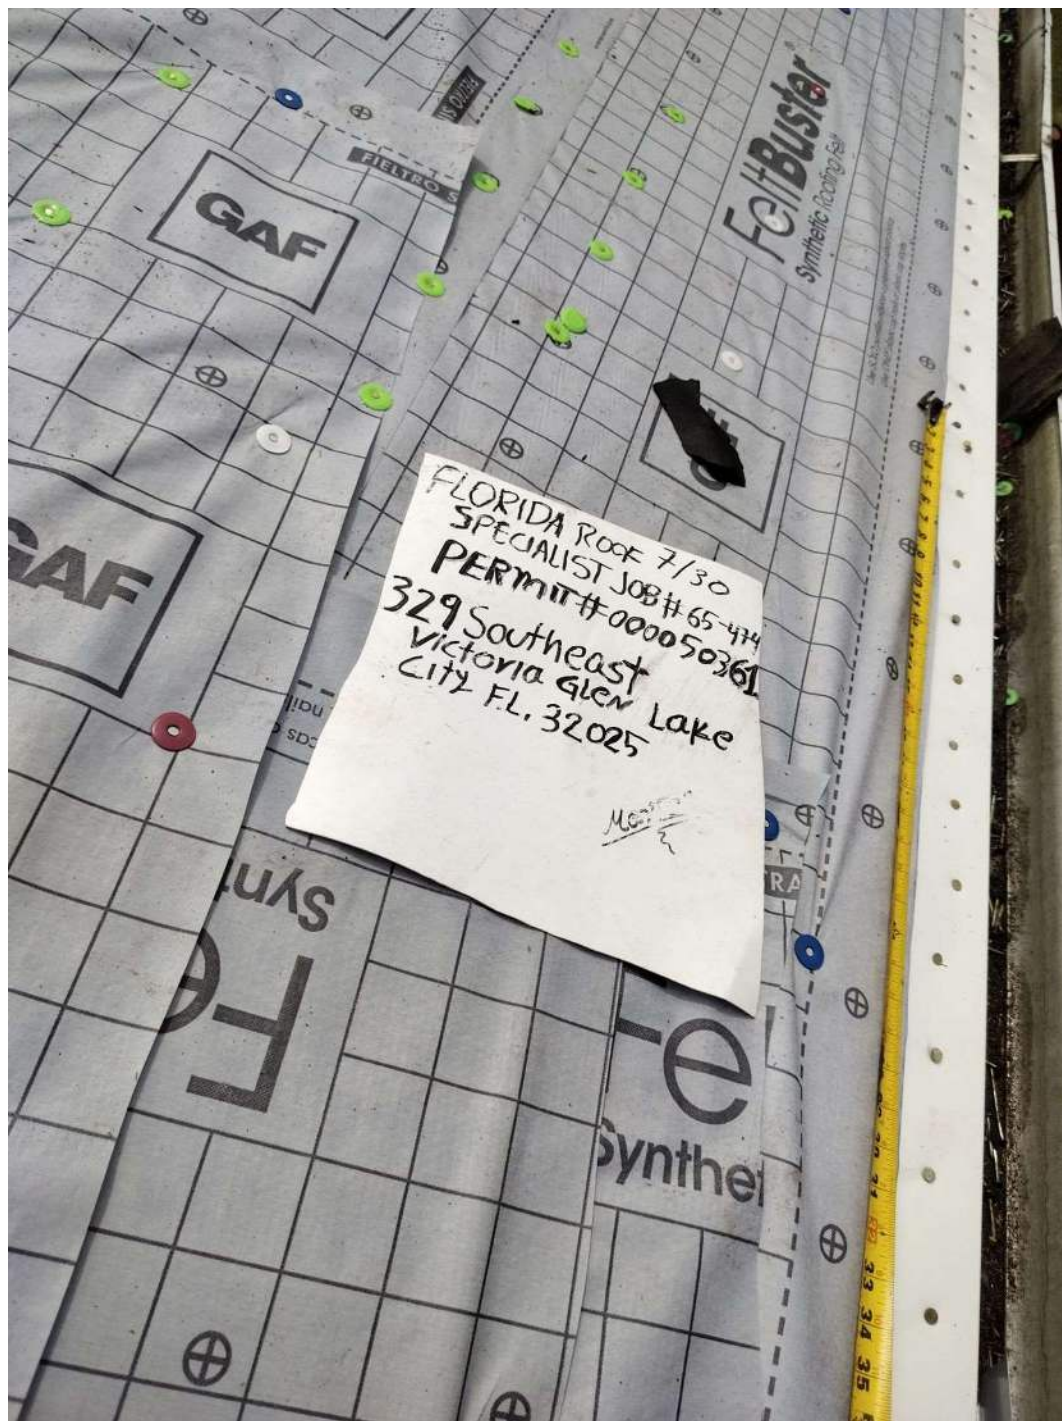 GAF
FIELTRO S
FeltBuster
Synthetic Roofing Felt
GAF
FLORIDA ROOF 7/30
SPECIALIST JOB# 65-474
PERMIT# 000050361
329 Southeast
Victoria Glen Lake
City F.L. 32025
Synt
Fe
TRA
Fe
Synthet
33
34
35